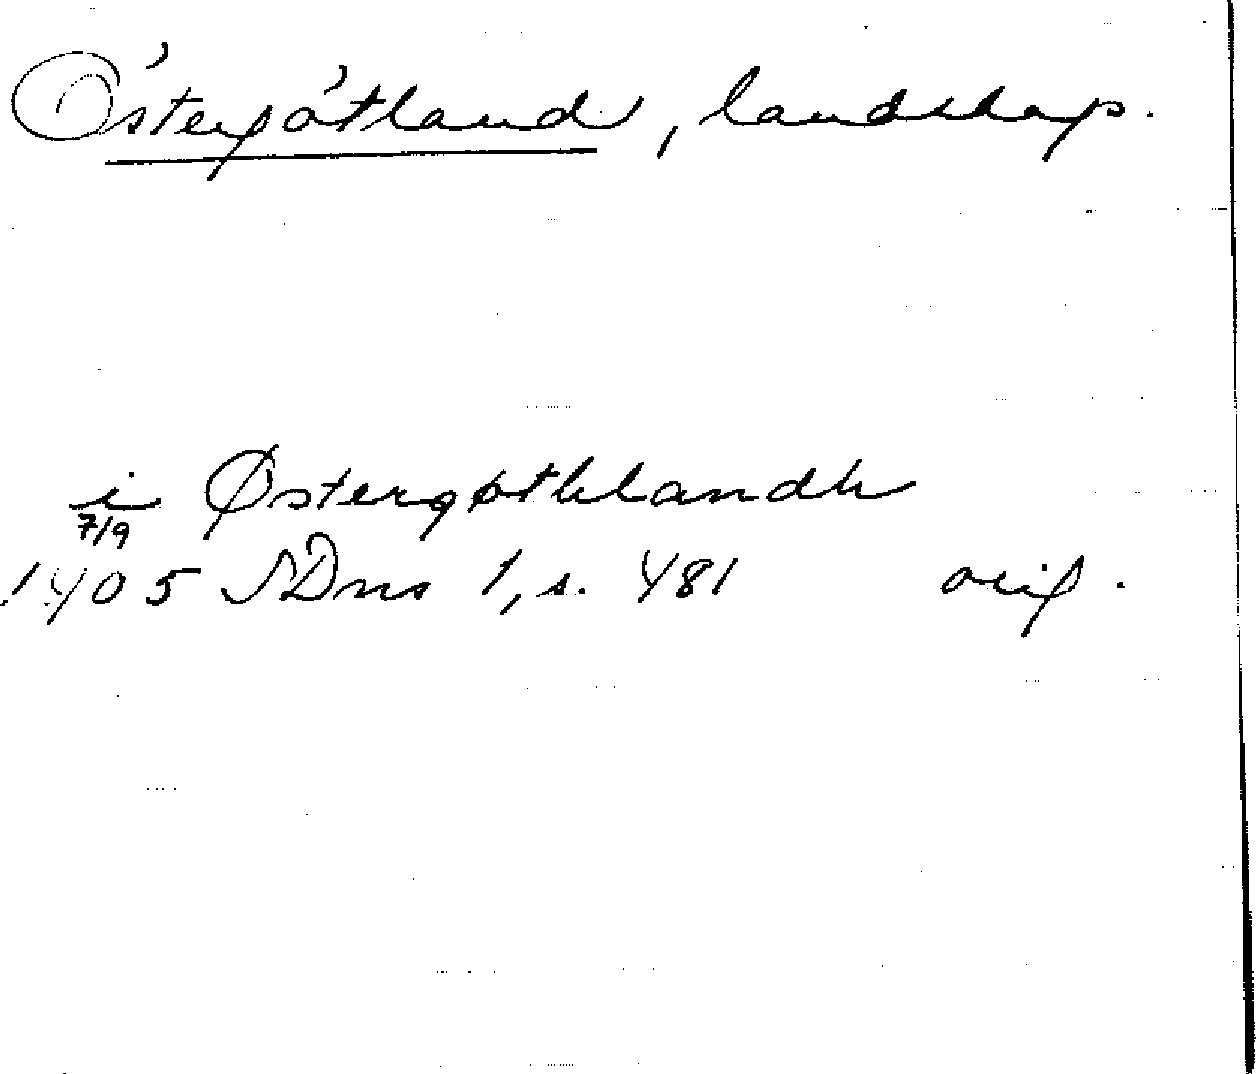 Östergötland, landskap.
i Østergøthlandh
7/9
1405 SDns 1, s. 481 orig.